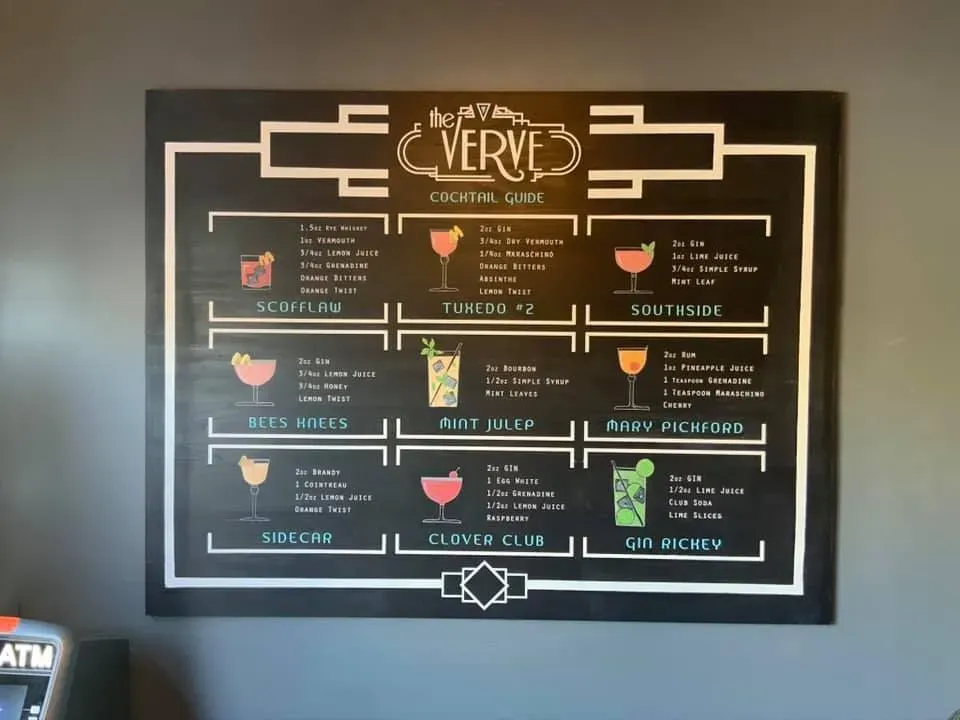 the
VERVE
COCKTAIL GUIDE
1.5oz Rye Whiskey
1oz Vermouth
3/4oz Lemon Juice
3/4oz Grenadine
Orange Bitters
Orange Twist
SCOFFLAW
2oz Gin
3/4oz Dry Vermouth
1/4oz Maraschino
Orange Bitters
Absinthe
Lemon Twist
TUXEDO #2
2oz Gin
1oz Lime Juice
3/4oz Simple Syrup
Mint Leaf
SOUTHSIDE
2oz Gin
3/4oz Lemon Juice
3/4oz Honey
Lemon Twist
BEES KNEES
2oz Bourbon
1/2oz Simple Syrup
Mint Leaves
MINT JULEP
2oz Rum
1oz Pineapple Juice
1 Teaspoon Grenadine
1 Teaspoon Maraschino
Cherry
MARY PICKFORD
2oz Brandy
1 Cointreau
1/2oz Lemon Juice
Orange Twist
SIDECAR
2oz GIN
1 Egg White
1/2oz Grenadine
1/2oz Lemon Juice
Raspberry
CLOVER CLUB
2oz GIN
1/2oz Lime Juice
Club Soda
Lime Slices
GIN RICKEY
ATM